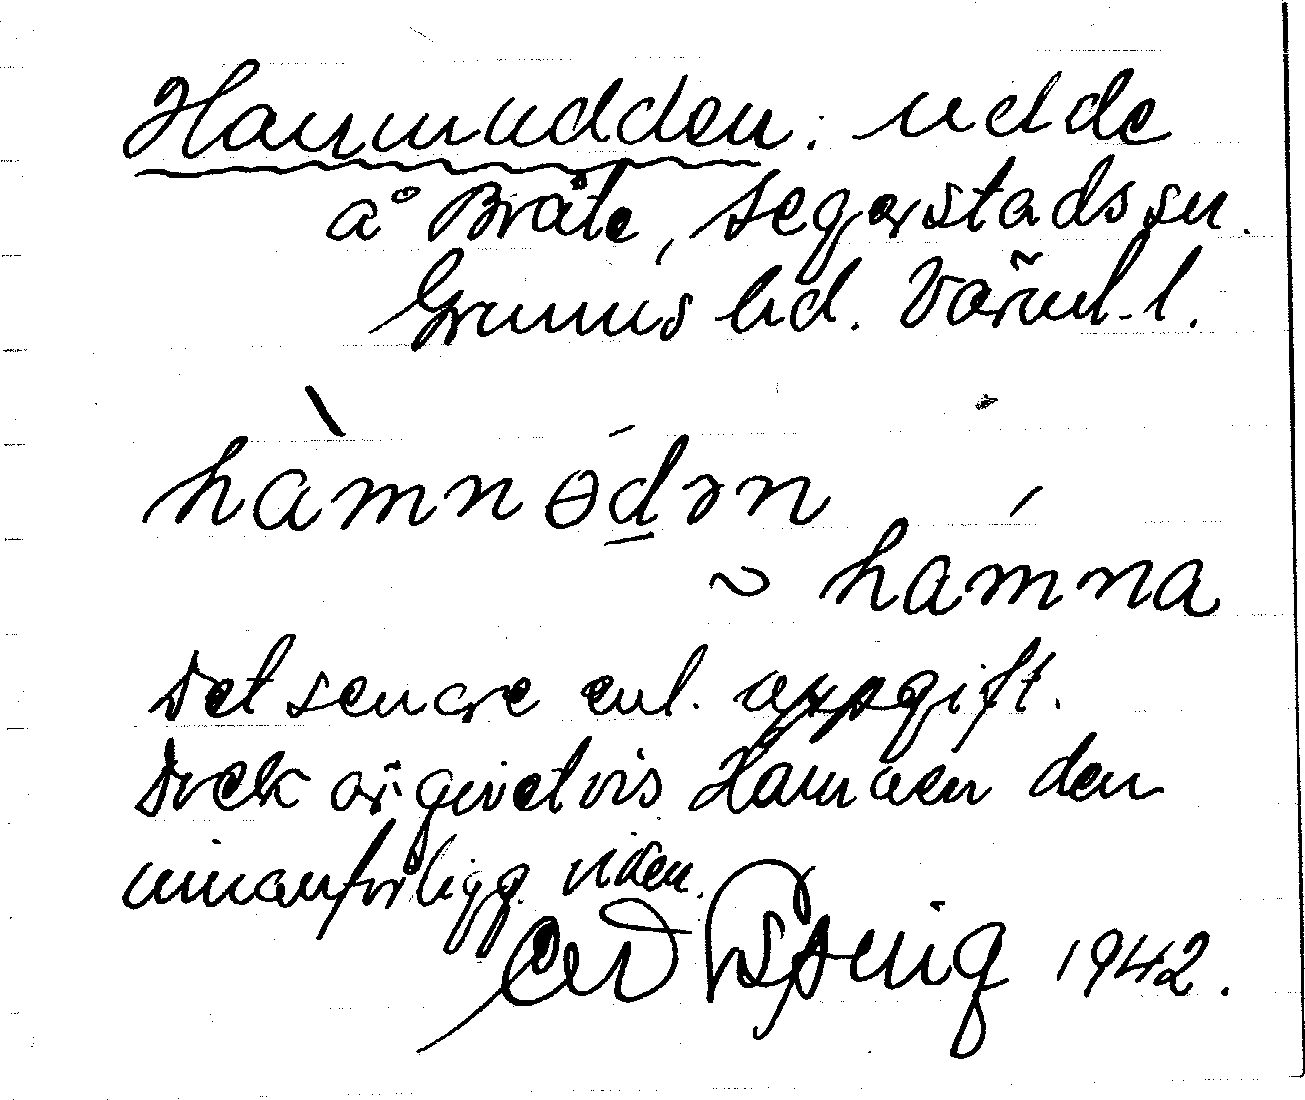 Hamnudden: udde
å Bråte, Segerstads sn.
Grums hd. Värml. l.
hàmnɵdən
~ hámna
Det senare enl. uppgift.
Dock är givetvis Hamnen den
innanförligg. viken.
1942.